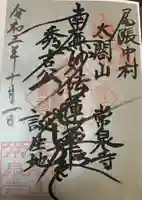 尾張中村
太閤山 常泉寺
南無妙法蓮華経
秀吉公 誕生地
令和 年十月一日